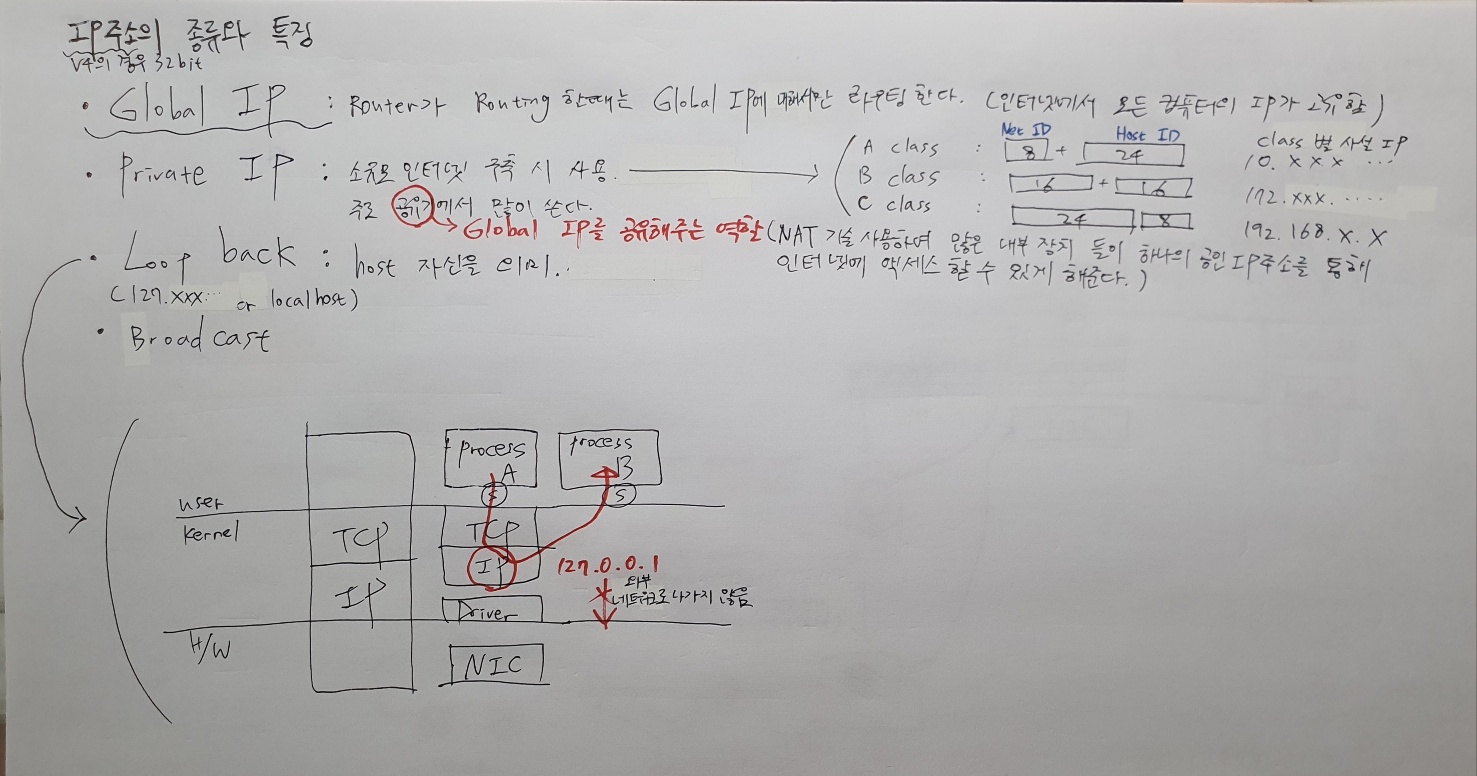 IP주소의 종류와 특징
V4의 경우 32bit
• Global IP : Router가 Routing 할때는 Global IP에 대해서만 라우팅 한다. (인터넷에서 모든 컴퓨터의 IP가 고유함)
• Private IP : 소규모 인터넷 구축 시 사용.
주로 공유기에서 많이 쓴다.
Net ID Host ID
A class : 8 + 24
B class : 16 + 16
C class : 24 8
class 별 사설 IP
10. x x x ...
172. xxx. .....
192. 168. x. x
Global IP를 공유해주는 역할 (NAT 기술 사용하여 많은 내부 장치 들이 하나의 공인 IP주소를 통해
인터넷에 액세스 할 수 있게 해준다.)
• Loop back : host 자신을 의미..
(127.xxx... or localhost)
• Broadcast
process A
process B
S
S
user
Kernel
TCP
TCP
IP
IP
127.0.0.1
외부
네트워크로 나가지 않음
Driver
H/W
NIC